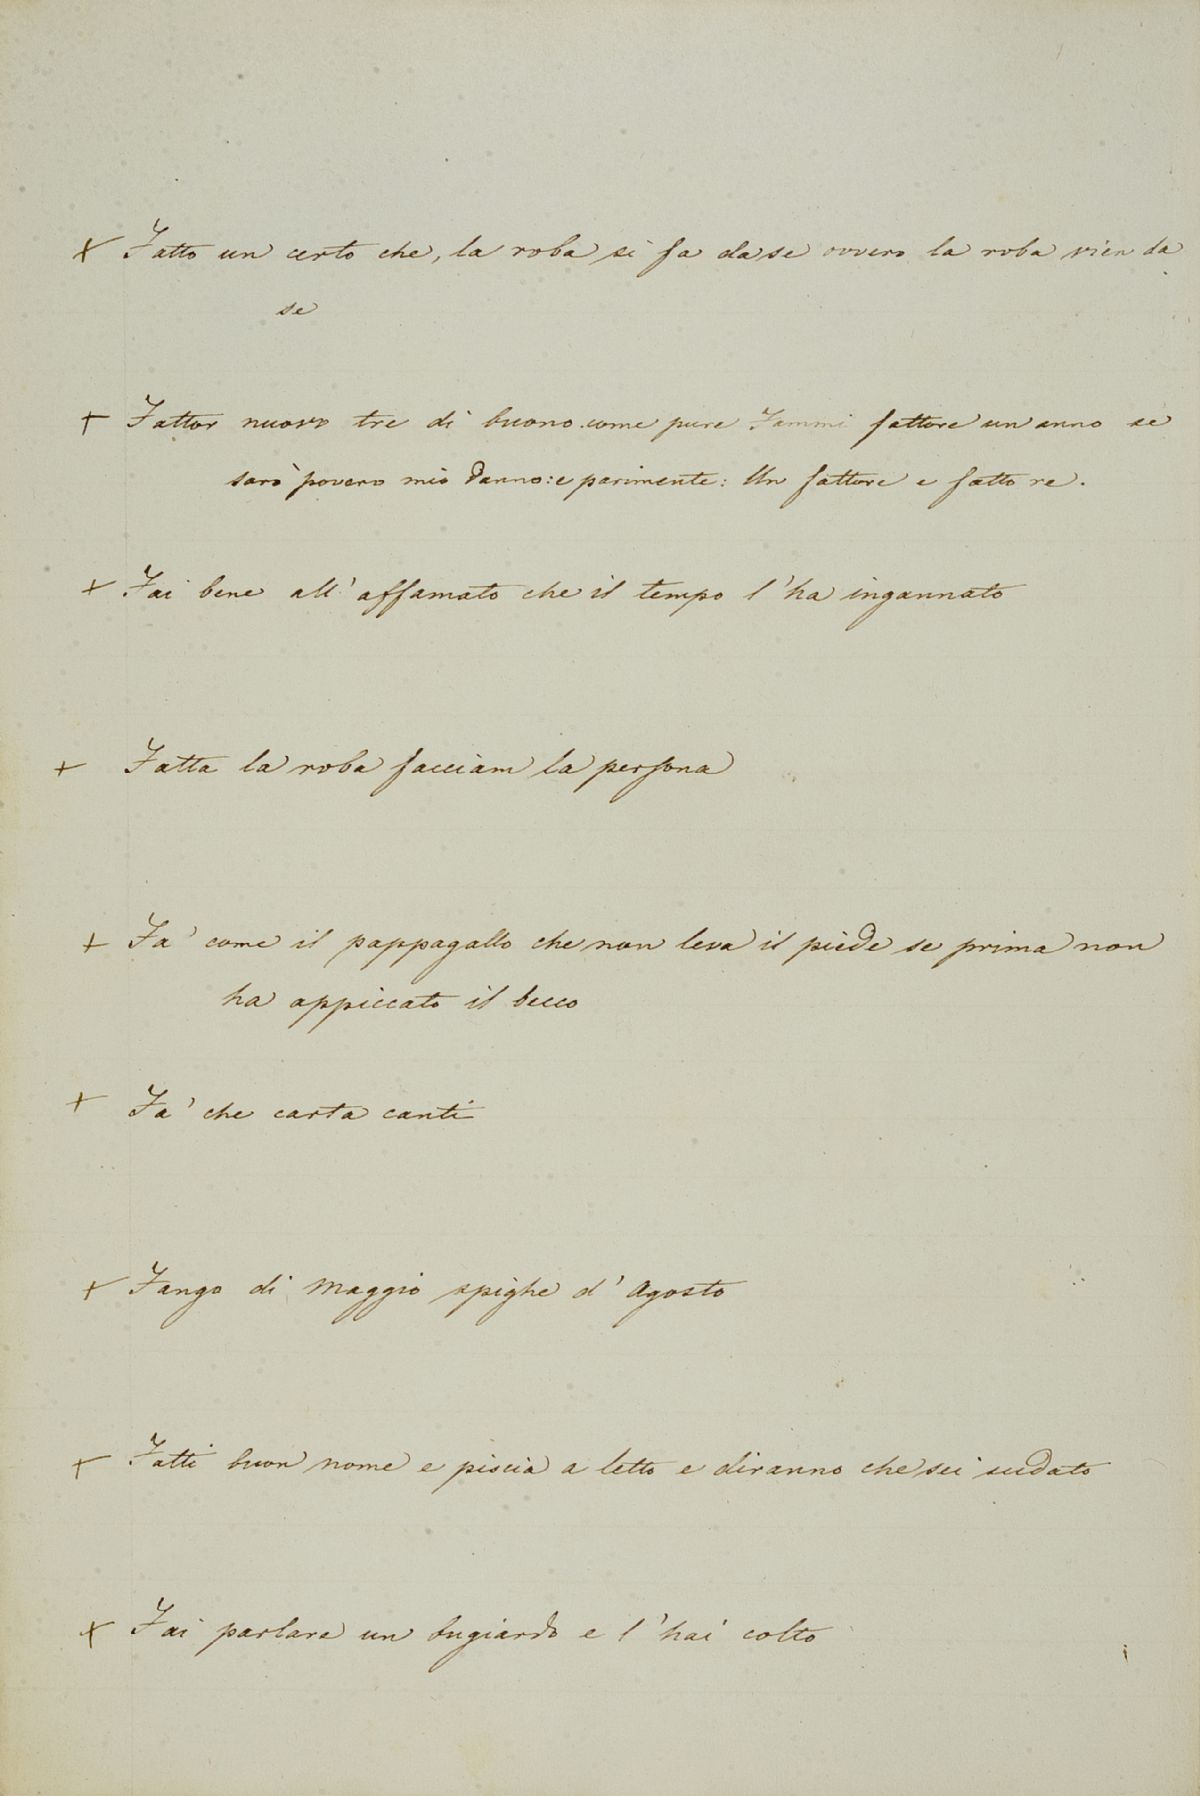 + Fatto un certo che, la roba si fa da se ovvero la roba vien da
se
+ Fattor nuovo tre dì buono. come pure Fammi fattore un anno se
sarò povero mio danno: e parimente: Un fattore e fatto re.
+ Fai bene all'affamato che il tempo l'ha ingannato
+ Fatta la roba facciam la persona
+ Fa' come il pappagallo che non leva il piede se prima non
ha appiccato il becco
+ Fa' che carta canti
+ Fango di Maggio spighe d'Agosto
+ Fatti buon nome e piscia a letto e diranno che sei sudato
+ Fai parlare un bugiardo e l'hai colto